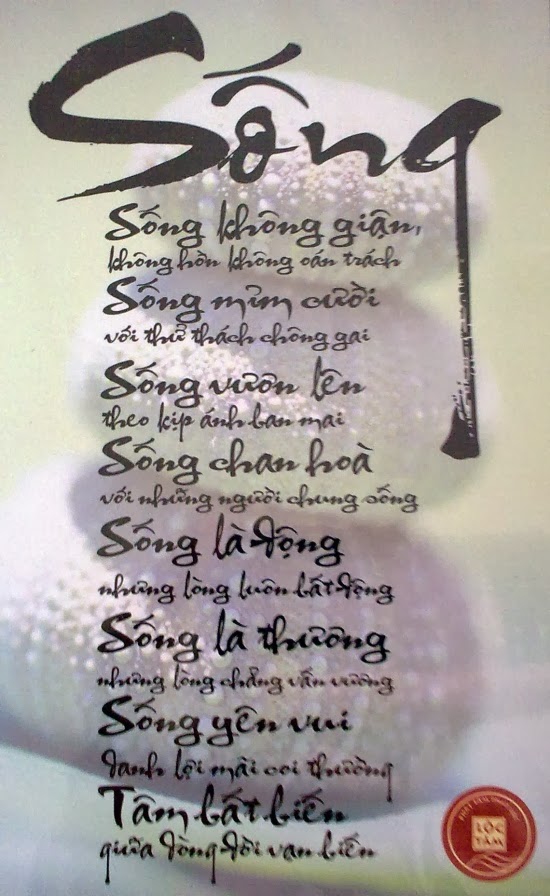 Sống
Sống không giận,
không hờn không oán trách
Sống mỉm cười
với thử thách chông gai
Sống vươn lên
theo kịp ánh ban mai
Sống chan hoà
với những người chung sống
Sống là động
nhưng lòng luôn bất động
Sống là thương
nhưng lòng chẳng vấn vương
Sống yên vui
danh lợi mãi coi thường
Tâm bất biến
giữa dòng đời vạn biến
LỘC
TÂM